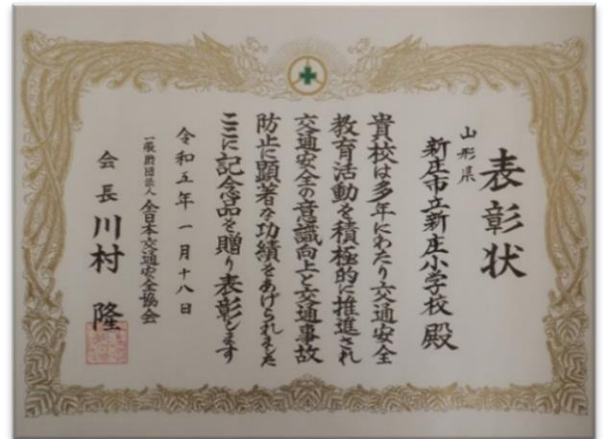 表彰状
山形県
新庄市立新庄小学校 殿
貴校は多年にわたり交通安全
教育活動を積極的に推進され
交通安全の意識向上と交通事故
防止に顕著な功績をあげられました
ここに記念品を贈り表彰します
令和五年一月十八日
一般財団法人 全日本交通安全協会
会長 川村 隆